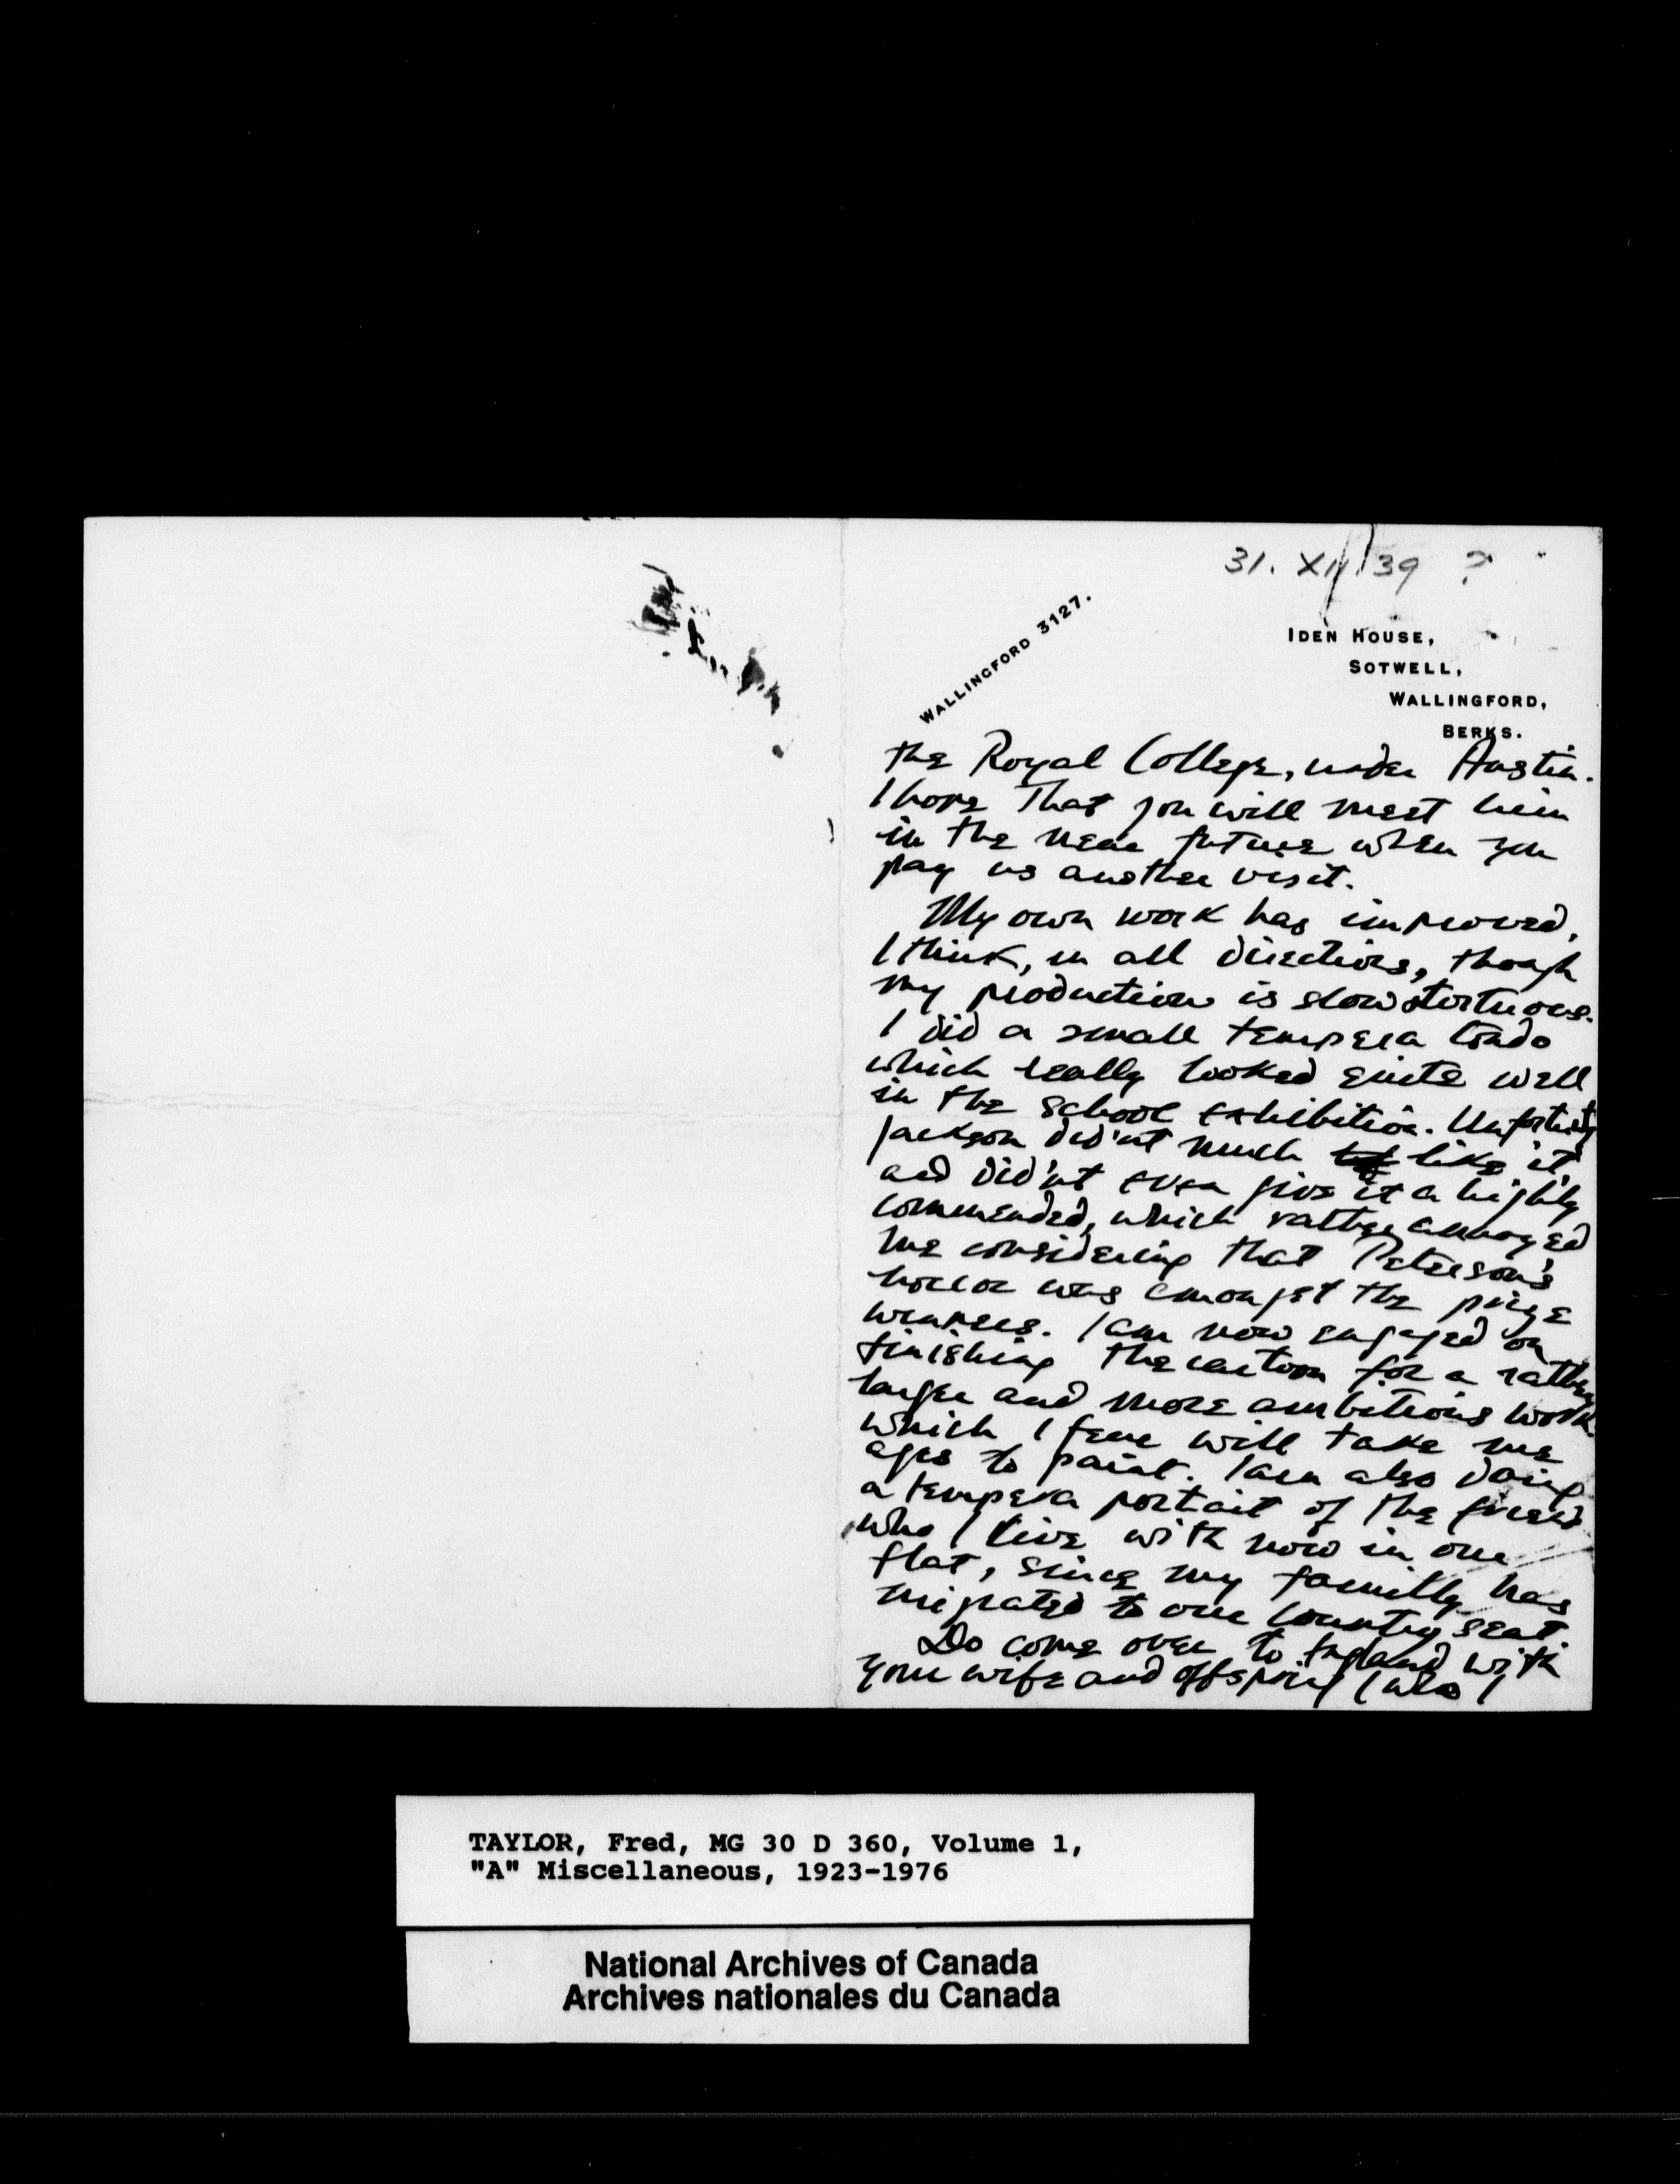 31. XII 39 ?
WALLINGFORD 3127.
IDEN HOUSE,
SOTWELL,
WALLINGFORD,
BERKS.
the Royal College, under Austin.
I hope that you will meet him
in the near future when you
pay us another visit.
My own work has improved,
I think, in all directions, though
my production is slow & tortuous.
I did a small tempera tondo
which really looked quite well
in the school exhibition. Unfortunately
Jackson did'nt much like it,
and did'nt even give it a highly
commended, which rather annoyed
me considering that Peterson's
horror was amongst the prize
winners. I am now engaged on
finishing the cartoon for a rather
larger and more ambitious work
which I fear will take me
ages to paint. I am also doing
a tempera portrait of the friend
who I live with now in our
flat, since my family has
migrated to our country seat.
Do come over to England with
your wife and offspring (who I
TAYLOR, Fred, MG 30 D 360, Volume 1,
"A" Miscellaneous, 1923-1976
National Archives of Canada
Archives nationales du Canada